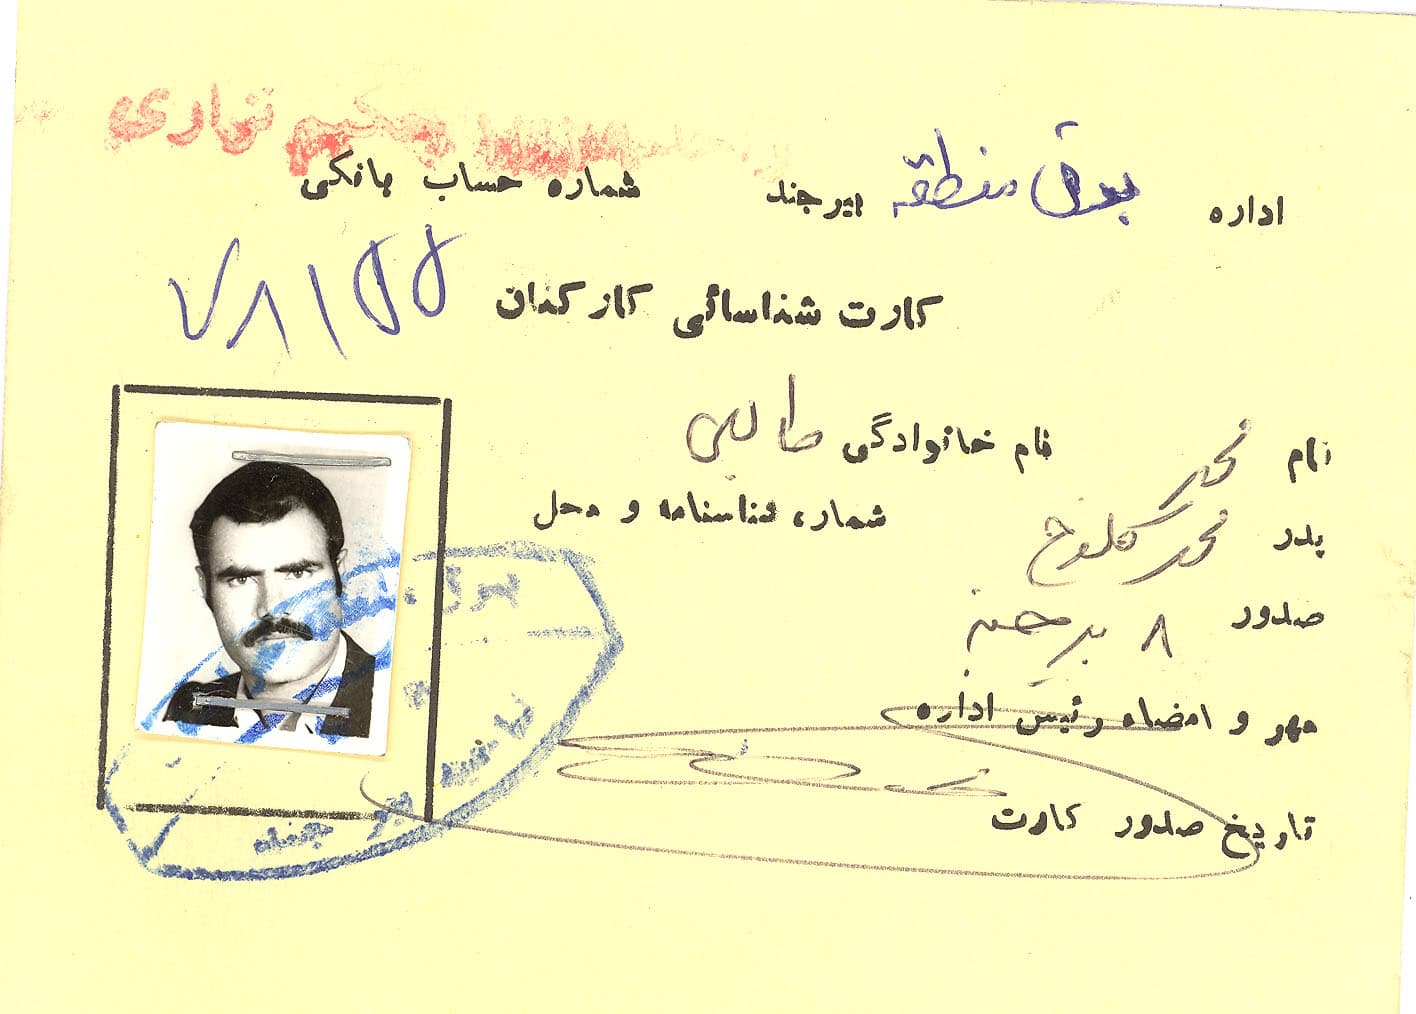 حکیم نهاری
اداره برق منطقه بیرجند شماره حساب بانکی
۷۸۱۵۵
کارت شناسائی کارکنان
نام محمد نام خانوادگی طالبی
پدر محمد کلوخ شماره شناسنامه و محل
صدور ۸ بیرجند
مهر و امضاء رئیس اداره
تاریخ صدور کارت
برق
بیرجند